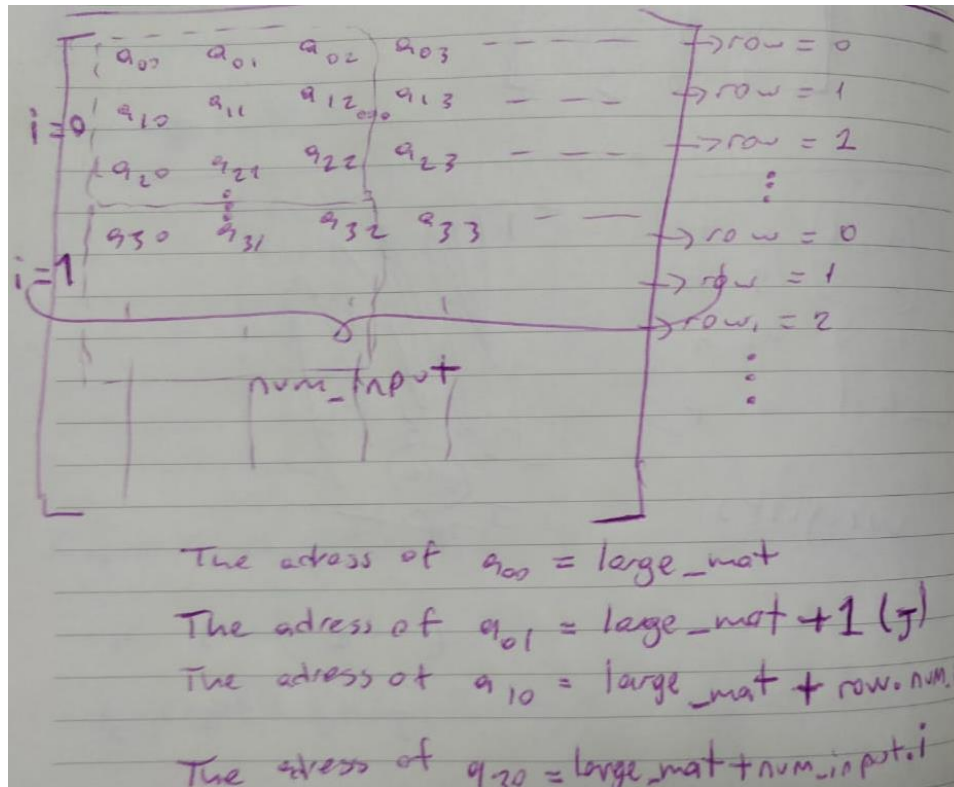 a00 a01 a02 a03 - - - - → row = 0
i = 0 a10 a11 a12 a13 - - - → row = 1
a20 a21 a22 a23 - - - → row = 2
a30 a31 a32 a33 - - → row = 0
i = 1 → row = 1
→ row = 2
num_input
The adress of a00 = large_mat
The adress of a01 = large_mat + 1 (J)
The adress of a10 = large_mat + row.num.
The adress of a20 = large_mat + num_input.i